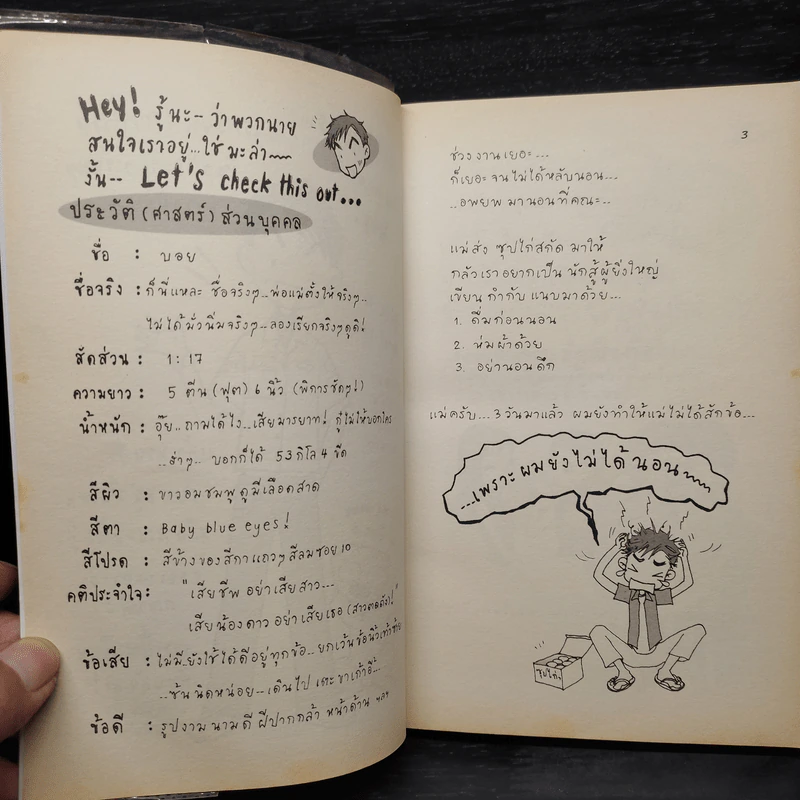 Hey! รู้นะ-- ว่าพวกนาย
สนใจเราอยู่...ใช่มะล่า~~
งั้น-- Let's check this out...
ประวัติ (ศาสตร์) ส่วนบุคคล
ชื่อ : บอย
ชื่อจริง : ก็นี่แหละ ชื่อจริงๆ...พ่อแม่ตั้งให้จริงๆ...
ไม่ได้มั่วนิ่มจริงๆ...ลองเรียกจริงๆดูดิ!
สัดส่วน : 1:17
ความยาว : 5 ตีน (ฟุต) 6 นิ้ว (พิการชัดๆ!)
น้ำหนัก : อุ๊ย...ถามได้ไง...เสียมารยาท! กูไม่ให้บอกใคร
...ล่ำๆ... บอกก็ได้ 53 กิโล 4 ขีด
สีผิว : ขาวอมชมพู ดูมีเลือดฝาด
สีตา : Baby blue eyes!
สีโปรด : สีข้างของสีกาแถวๆสีลมซอย 10
คติประจำใจ : "เสียชีพ อย่าเสียสาว...
เสียน้องดาว อย่าเสียเธอ (สาวตาดตัง)!"
ข้อเสีย : ไม่มี..ยังใช้ได้ดีอยู่ทุกข้อ...ยกเว้นข้อนิ้วเท้าซ้าย
...ซ้นนิดหน่อย--เดินไปเตะขาเก้าอี้...
ข้อดี : รูปงาม นามดี ฝีปากกล้า หน้าด้าน ฯลฯ
3
ช่วงงานเยอะ...
ก็เยอะจนไม่ได้หลับนอน...
..อพยพมานอนที่คณะ..
แม่ส่งซุปไก่สกัดมาให้
กลัวเราอยากเป็นนักสู้ผู้ยิ่งใหญ่
เขียนกำกับแนบมาด้วย...
1. ดื่มก่อนนอน
2. ห่มผ้าด้วย
3. อย่านอนดึก
แม่ครับ...3 วันมาแล้ว ผมยังทำให้แม่ไม่ได้สักข้อ...
...เพราะผมยังไม่ได้นอน~~
ซุปไก่